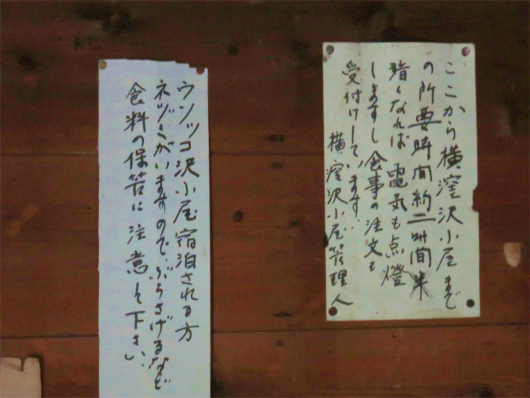 ここから横窪沢小屋まで
の所要時間約二時間半
暗くなれば電気も点燈
しますし食事の注文も
受付けしています…
横窪沢小屋管理人
ウソッコ沢小屋宿泊される方
ネヅミがいますのでぶらさげるなど
食料の保管に注意して下さい